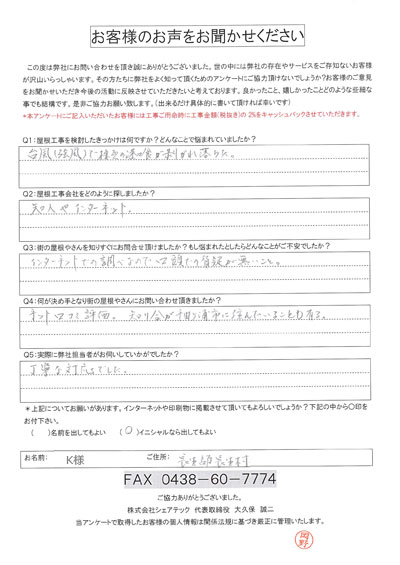 お客様のお声をお聞かせください
この度は弊社にお問い合わせを頂き誠にありがとうございました。世の中には弊社の存在やサービスをご存知ないお客様
が沢山いらっしゃいます。その方たちに弊社をよく知って頂くためのアンケートにご協力頂けないでしょうか?お客様のご意見
をお聞かせいただき今後の活動に反映させていただきたいと考えております。良かったこと、嬉しかったことどのような些細な
事でも結構です。是非ご協力お願い致します。(出来るだけ具体的に書いて頂ければ幸いです)
*本アンケートにご記入いただいたお客様には工事ご用命時に工事金額(税抜き)の 2%をキャッシュバックさせていただきます。
Q1:屋根工事を検討したきっかけは何ですか?どんなことで悩まれていましたか?
台風(強風)で棟瓦の漆喰が剥がれ落ちた。
Q2:屋根工事会社をどのように探しましたか?
知人やインターネット。
Q3:街の屋根やさんを知りすぐにお問合せ頂けましたか?もし悩まれたとしたらどんなことがご不安でしたか?
インターネットでの調べなので口頭での確認が無いこと。
Q4:何が決め手となり街の屋根やさんにお問い合わせ頂きましたか?
ネット口コミ評価。知り合いが木更津市に住んでいることも有る。
Q5:実際に弊社担当者がお伺いしていかがでしたか?
丁寧な対応でした。
*上記についてお願いがあります。インターネットや印刷物に掲載させて頂いてもよろしいでしょうか?下記の中から〇印を
お付下さい。
( )名前を出してもよい (○)イニシャルなら出してもよい
お名前: K様 ご住所: 長生郡長生村
FAX 0438-60-7774
ご協力ありがとうございました。
株式会社シェアテック 代表取締役 大久保 誠二
当アンケートで取得したお客様の個人情報は関係法規に基づき厳正に管理いたします。